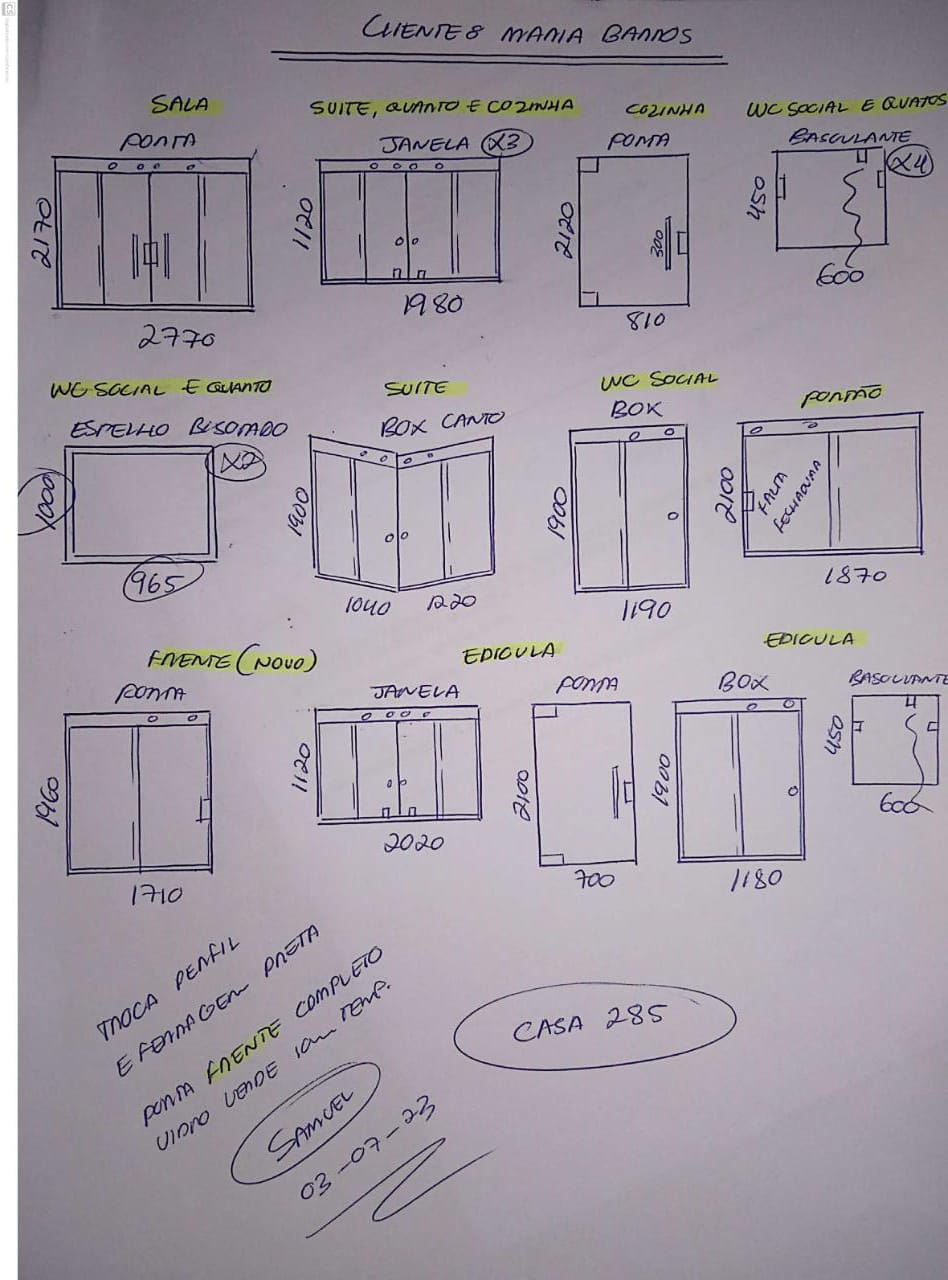 CLIENTE & MARIA BARROS
SALA
PORTA
2170
2770
SUITE, QUARTO E COZINHA
JANELA X3
1120
1980
COZINHA
PORTA
2120
300
810
WC SOCIAL E QUATOS
BASCULANTE
X4
450
600
WC SOCIAL E QUARTO
ESPELHO BISOTADO
X2
1000
965
SUITE
BOX CANTO
1900
1040 1220
WC SOCIAL
BOX
1900
1190
PORTÃO
2100
FALTA
FECHADURA
1870
FRENTE (NOVO)
PORTA
1960
1710
EDICULA
JANELA
1120
2020
PORTA
2100
700
EDICULA
BOX
1900
1180
BASCULANTE
450
600
TROCA PERFIL
E FERRAGEM PRETA
PORTA FRENTE COMPLETO
VIDRO VERDE 10mm TEMP.
SAMUEL
03-07-23
CASA 285